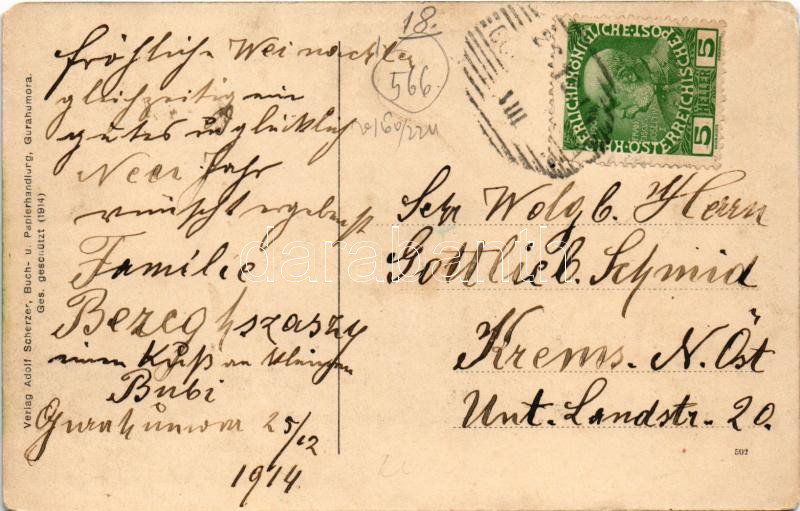 Verlag Adolf Scherzer, Buch- u. Papierhandlung, Gurahumora.
Ges. geschützt (1914)
fröhliche Weinachten
gleichzeitig ein
gutes u glücklich
Neer Jahr
wünscht ergebenst
Familie
Bereghszaszy
einen Kuß an kleinen
Bubi
Gurahumora 25/12
1914
18.
566
KAISERLICHE KÖNIGLICHE ÖSTERREICHISCHE POST
5 HELLER 5
Sehr Wolgb. Herrn
Gottlieb Schmid
Krems. N. Öst
Unt. Landstr. 20.
502
darabanth